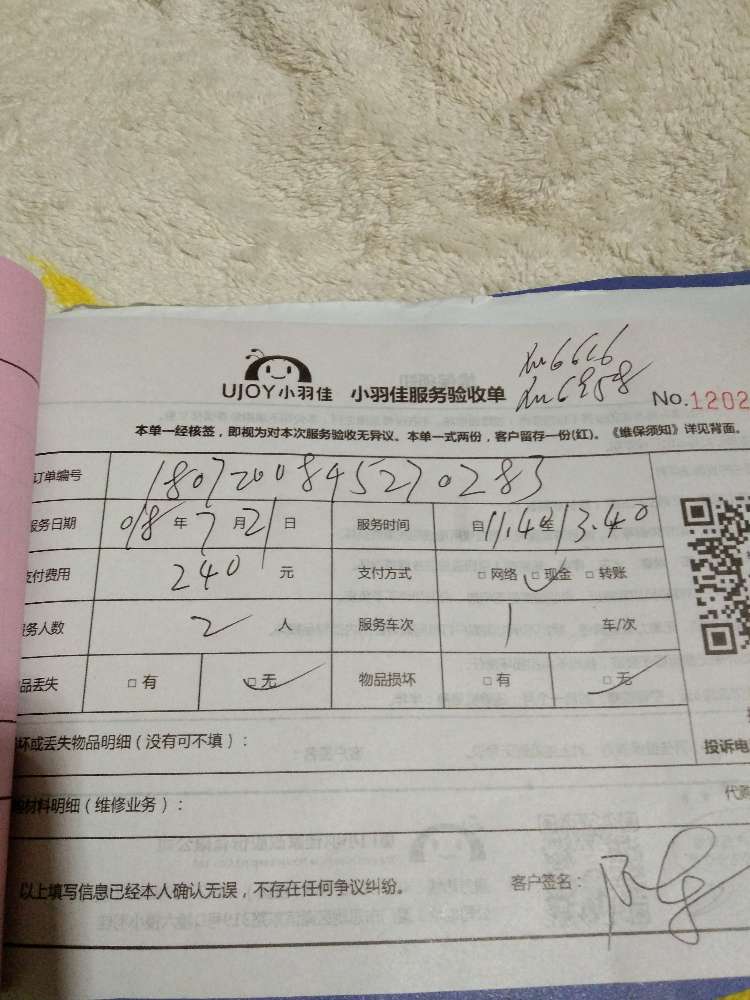 UJOY小羽佳 小羽佳服务验收单 No.1202
本单一经核签，即视为对本次服务验收无异议。本单一式两份，客户留存一份(红)。《维保须知》详见背面。
订单编号 1807200845270283
服务日期 018年7月21日 服务时间 自11.40至13.40
支付费用 240元 支付方式 □网络 □现金 □转账
服务人数 2人 服务车次 1车/次
品丢失 □有 □无 物品损坏 □有 □无
坏或丢失物品明细（没有可不填）： 投诉电
材料明细（维修业务）： 代
以上填写信息已经本人确认无误，不存在任何争议纠纷。 客户签名：